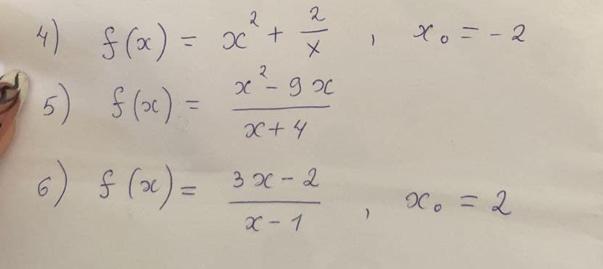 4) f(x) = x² + 2/x , x₀ = -2
5) f(x) = (x² - 9x)/(x + 4)
6) f(x) = (3x - 2)/(x - 1) , x₀ = 2